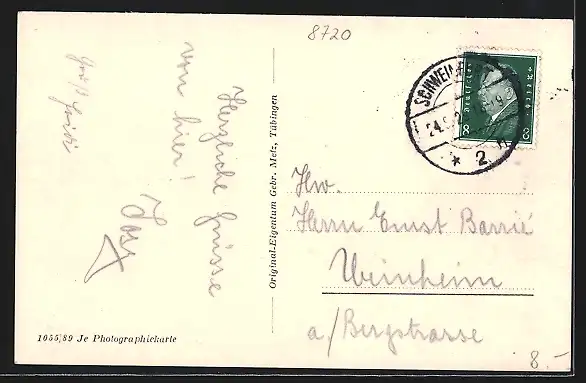 8720
Herzliche Grüsse
von hier!
Original-Eigentum Gebr. Metz, Tübingen
1055/89 Je Photographiekarte
SCHWEINFURT
24.
* 2
8 8
Hw.
Herrn Ernst Barrié
Weinheim
a/Bergstrasse
8.-